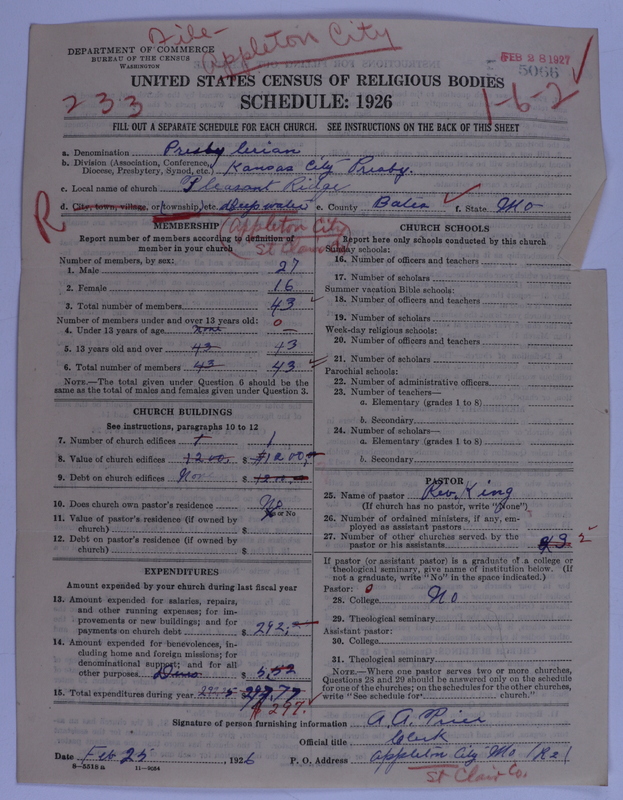 File- Appleton City
DEPARTMENT OF COMMERCE
BUREAU OF THE CENSUS
WASHINGTON
FEB 28 1927
5066
UNITED STATES CENSUS OF RELIGIOUS BODIES
SCHEDULE: 1926
233
1-6-2
FILL OUT A SEPARATE SCHEDULE FOR EACH CHURCH. SEE INSTRUCTIONS ON THE BACK OF THIS SHEET
a. Denomination Presbyterian
b. Division (Association, Conference, Diocese, Presbytery, Synod, etc.) Kansas City Presby.
c. Local name of church Pleasant Ridge
R
d. City, town, village, or township, etc. deepwater e. County Bates f. State Mo
Appleton City
St Clair
MEMBERSHIP
Report number of members according to definition of
member in your church
Number of members, by sex:
1. Male 27
2. Female 16
3. Total number of members 43
Number of members under and over 13 years old: 0
4. Under 13 years of age none —
5. 13 years old and over 43 43
6. Total number of members 43 43
NOTE.—The total given under Question 6 should be
same as the total of males and females given under Question 3.
CHURCH BUILDINGS
See instructions, paragraphs 10 to 12
7. Number of church edifices 1 1
8. Value of church edifices 1200. $ $1200.
9. Debt on church edifices No $
10. Does church own pastor's residence No
Yes or No
11. Value of pastor's residence (if owned by
church) $
12. Debt on pastor's residence (if owned by
church) $
EXPENDITURES
Amount expended by your church during last fiscal year
13. Amount expended for salaries, repairs,
and other running expenses; for im-
provements or new buildings; and for
payments on church debt $ 292,
14. Amount expended for benevolences, in-
cluding home and foreign missions; for
denominational support; and for all
other purposes. $ 5,
15. Total expenditures during year $ 297.77
$ 297.
CHURCH SCHOOLS
Report here only schools conducted by this church
Sunday schools:
16. Number of officers and teachers
17. Number of scholars
Summer vacation Bible schools:
18. Number of officers and teachers
19. Number of scholars
Week-day religious schools:
20. Number of officers and teachers
21. Number of scholars
Parochial schools:
22. Number of administrative officers
23. Number of teachers—
a. Elementary (grades 1 to 8)
b. Secondary
24. Number of scholars—
a. Elementary (grades 1 to 8)
b. Secondary
PASTOR
25. Name of pastor Rev. King
(If church has no pastor, write "None")
26. Number of ordained ministers, if any, em-
ployed as assistant pastors
27. Number of other churches served by the
pastor or his assistants 3 2
If pastor (or assistant pastor) is a graduate of a college or
theological seminary, give name of institution below. (If
not a graduate, write "No" in the space indicated.)
Pastor: 0
28. College No
29. Theological seminary
Assistant pastor:
30. College
31. Theological seminary
NOTE.—Where one pastor serves two or more churches,
Questions 28 and 29 should be answered only on the schedule
for one of the churches; on the schedules for the other churches,
write "See schedule for church."
Signature of person furnishing information A. A. Price
Official title Clerk
Date Feb 25, 1926 P. O. Address Appleton City Mo (Re 1
St Clair Co.
8-5518 a 11-9064